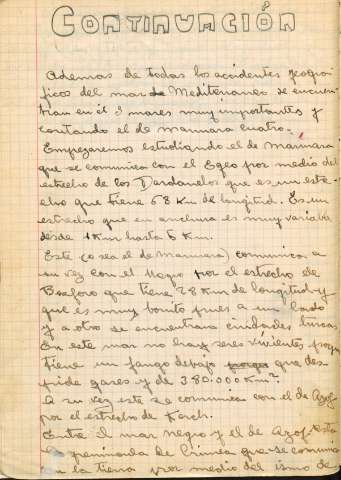 CONTINUACIÓN
Ademas de todas los accidentes geográ-
ficos del mar de Mediterraneo se encuen-
tran en él 3 mares muy importantes y
contando el de marmara cuatro.
Empezaremos estudiando el de Mármara
que se comunica con el Egeo por medio del
estrecho de los Dardanelos que es un estre-
cho que tiene 68 Km de longitud. Es un
estrecho que en anchura es muy variable
desde 1 Km hasta 6 Km.
Este (o sea el de Marmara) comunica a
su vez con el Negro por el estrecho de
Bosforo que tiene 28 Km de longitud y
que es muy bonito pues a un lado
y a otro se encuentran ciudades turcas
En este mar no hay seres vivientes porque
tiene un fango debajo que des-
pide gases y de 380.000 Km².
A su vez este se comunica con el de Azof
por el estrecho de Kerch.
Entre el mar negro y el de Azof está
la peninsula de Crimea que se comunica
con la tierra por medio del ismo de